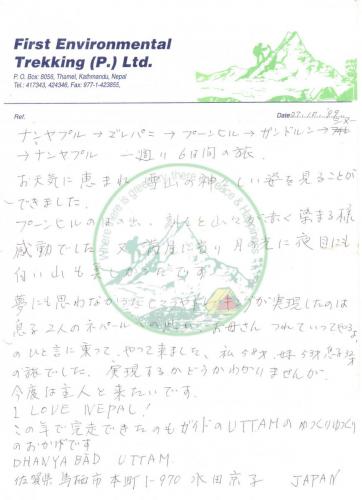 First Environmental
Trekking (P.) Ltd.
P. O. Box: 8056, Thamel, Kathmandu, Nepal
Tel.: 417343, 424346, Fax: 977-1-423855,
Ref.
Date:
ナンヤプル→ゴレパニ→プーンヒル→ガンドルン→
→ナンヤプル 一週り 6日間の旅.
お天気に恵まれ 雪山の神々しい姿を見ることが
できました.
プーンヒルの 山々が赤く染まる様
感動でした. 又 満月に当り 月の光に夜目にも
白い山も
夢にも思わなかった が実現したのは
息子2人のネパール お母さん つれていってやるよ
のひと言に乗って やって来ました. 私58才, 妹53才息子
の旅でした. 実現するかどうかわかりませんが.
今度は主人と来たいです.
I LOVE NEPAL!
この年で完走できたのもガイドのUTTAMのゆっくりゆっくり
のおかげです
DHANYA BĀD UTTAM.
佐賀県鳥栖市本町1-970 永田京子 JAPAN